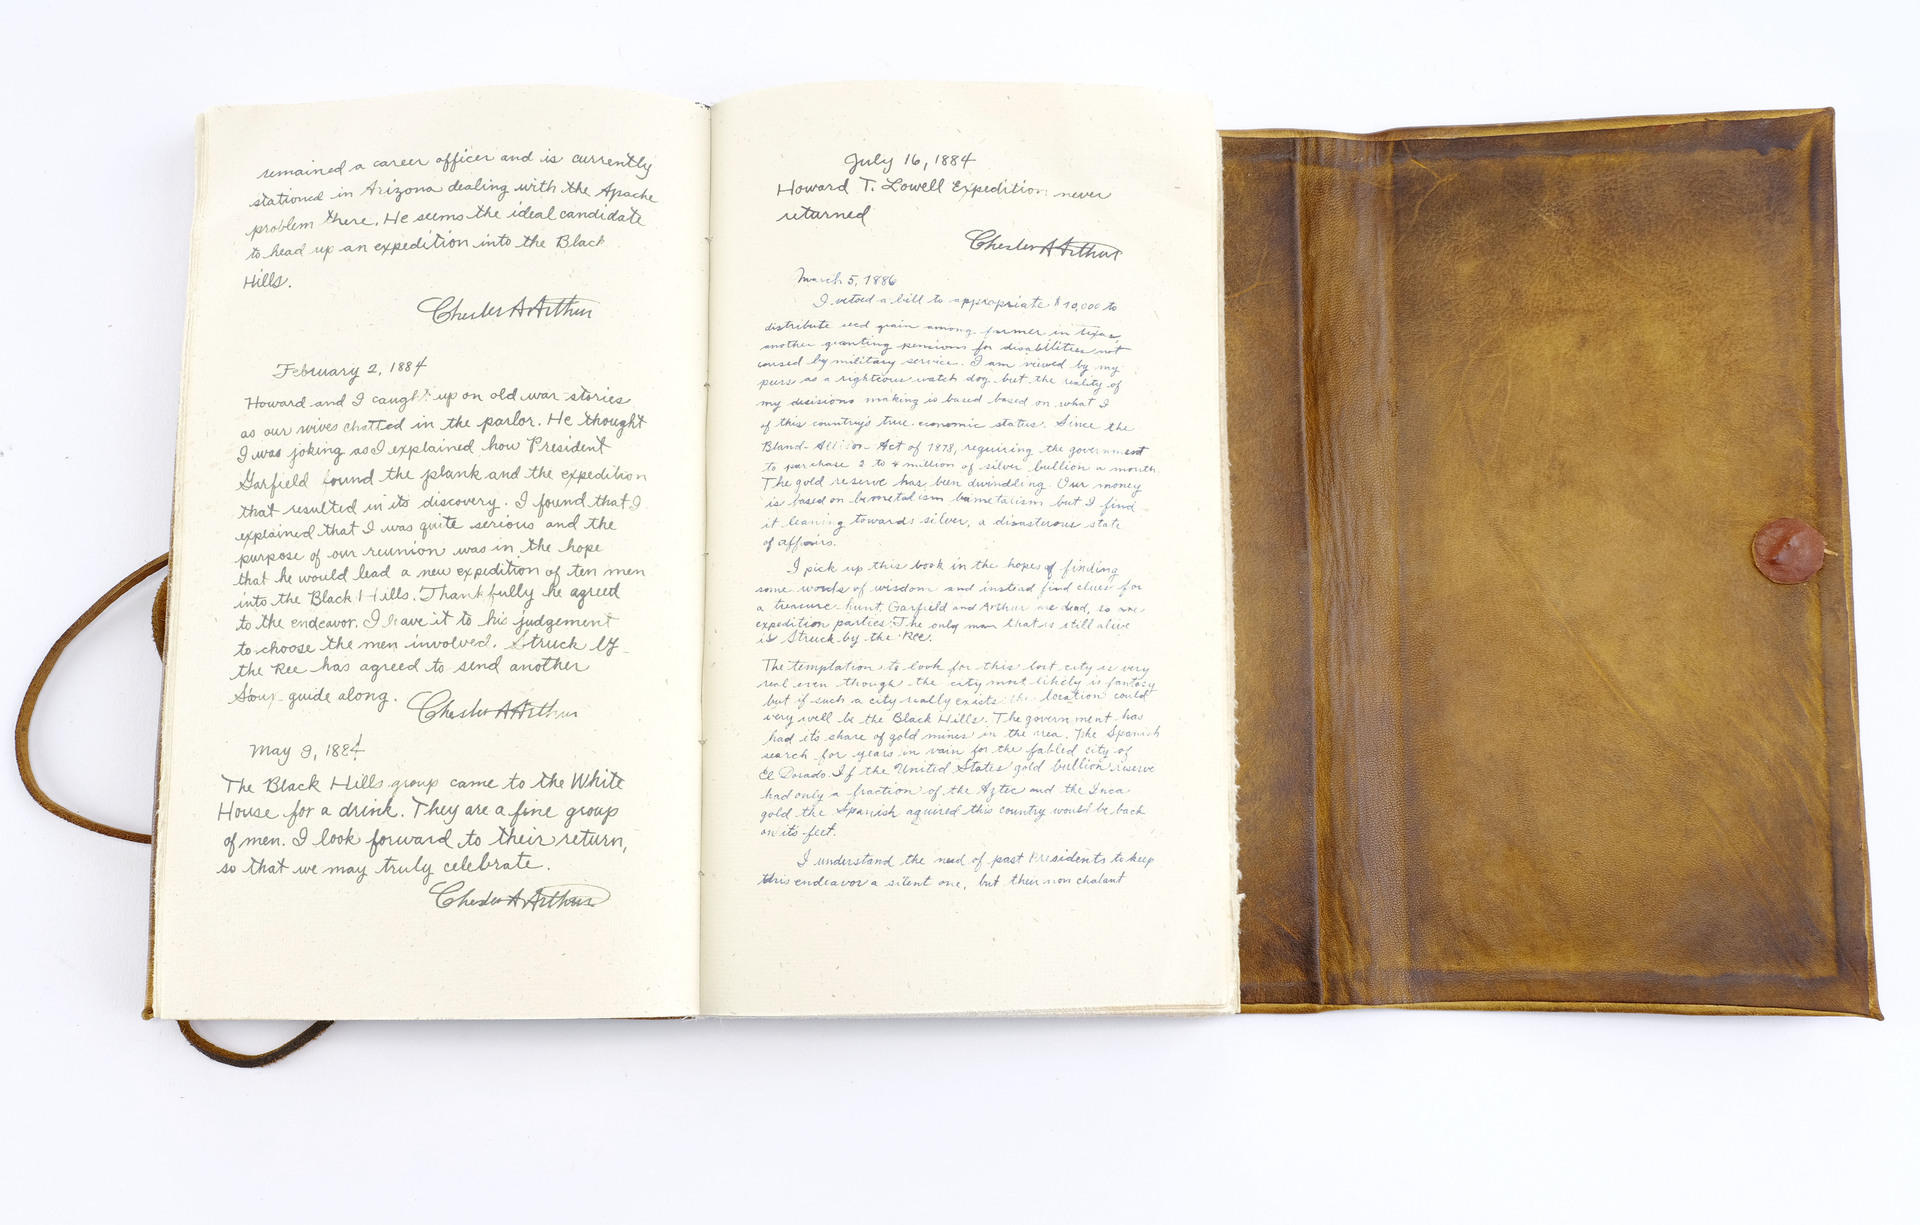 remained a career officer and is currently
stationed in Arizona dealing with the Apache
problem there. He seems the ideal candidate
to head up an expedition into the Black
Hills.
Chester A Arthur
February 2, 1884
Howard and I caught up on old war stories
as our wives chatted in the parlor. He thought
I was joking as I explained how President
Garfield found the plank and the expedition
that resulted in its discovery. I found that I
explained that I was quite serious and the
purpose of our reunion was in the hope
that he would lead a new expedition of ten men
into the Black Hills. Thankfully he agreed
to the endeavor. I leave it to his judgement
to choose the men involved. Struck by
the Ree has agreed to send another
guide along.
Chester A Arthur
May 9, 1884
The Black Hills group came to the White
House for a drink. They are a fine group
of men. I look forward to their return,
so that we may truly celebrate.
Chester A Arthur
July 16, 1884
Howard T. Lowell Expedition never
returned
Chester A Arthur
March 5, 1886
I vetoed a bill to appropriate $10,000 to
distribute seed grain among farmer in Texas,
another granting pensions for disabilities not
caused by military service. I am viewed by my
peers as a righteous watch dog, but the reality of
my decisions making is based based on what I
of this country's true economic status. Since the
Bland-Allison Act of 1878, requiring the government
to purchase 2 to 4 million of silver bullion a month.
The gold reserve has been dwindling. Our money
is based on bimetalism bimetalism but I find
it leaning towards silver, a disasterous state
of affairs.
I pick up this book in the hopes of finding
some words of wisdom and instead find clues for
a treasure hunt, Garfield and Arthur are dead, so are
expedition parties. The only man that is still alive
is Struck by the Ree.
The temptation to look for this lost city is very
real even though the city most likely is fantasy
but if such a city really exists the location could
very well be the Black Hills. The government has
had its share of gold mines in the area. The Spanish
search for years in vain for the fabled city of
El Dorado. If the United States gold bullion reserve
had only a fraction of the Aztec and the Inca
gold the Spanish aquired this country would be back
on its feet.
I understand the need of past Presidents to keep
this endeavor a silent one, but their non chalant